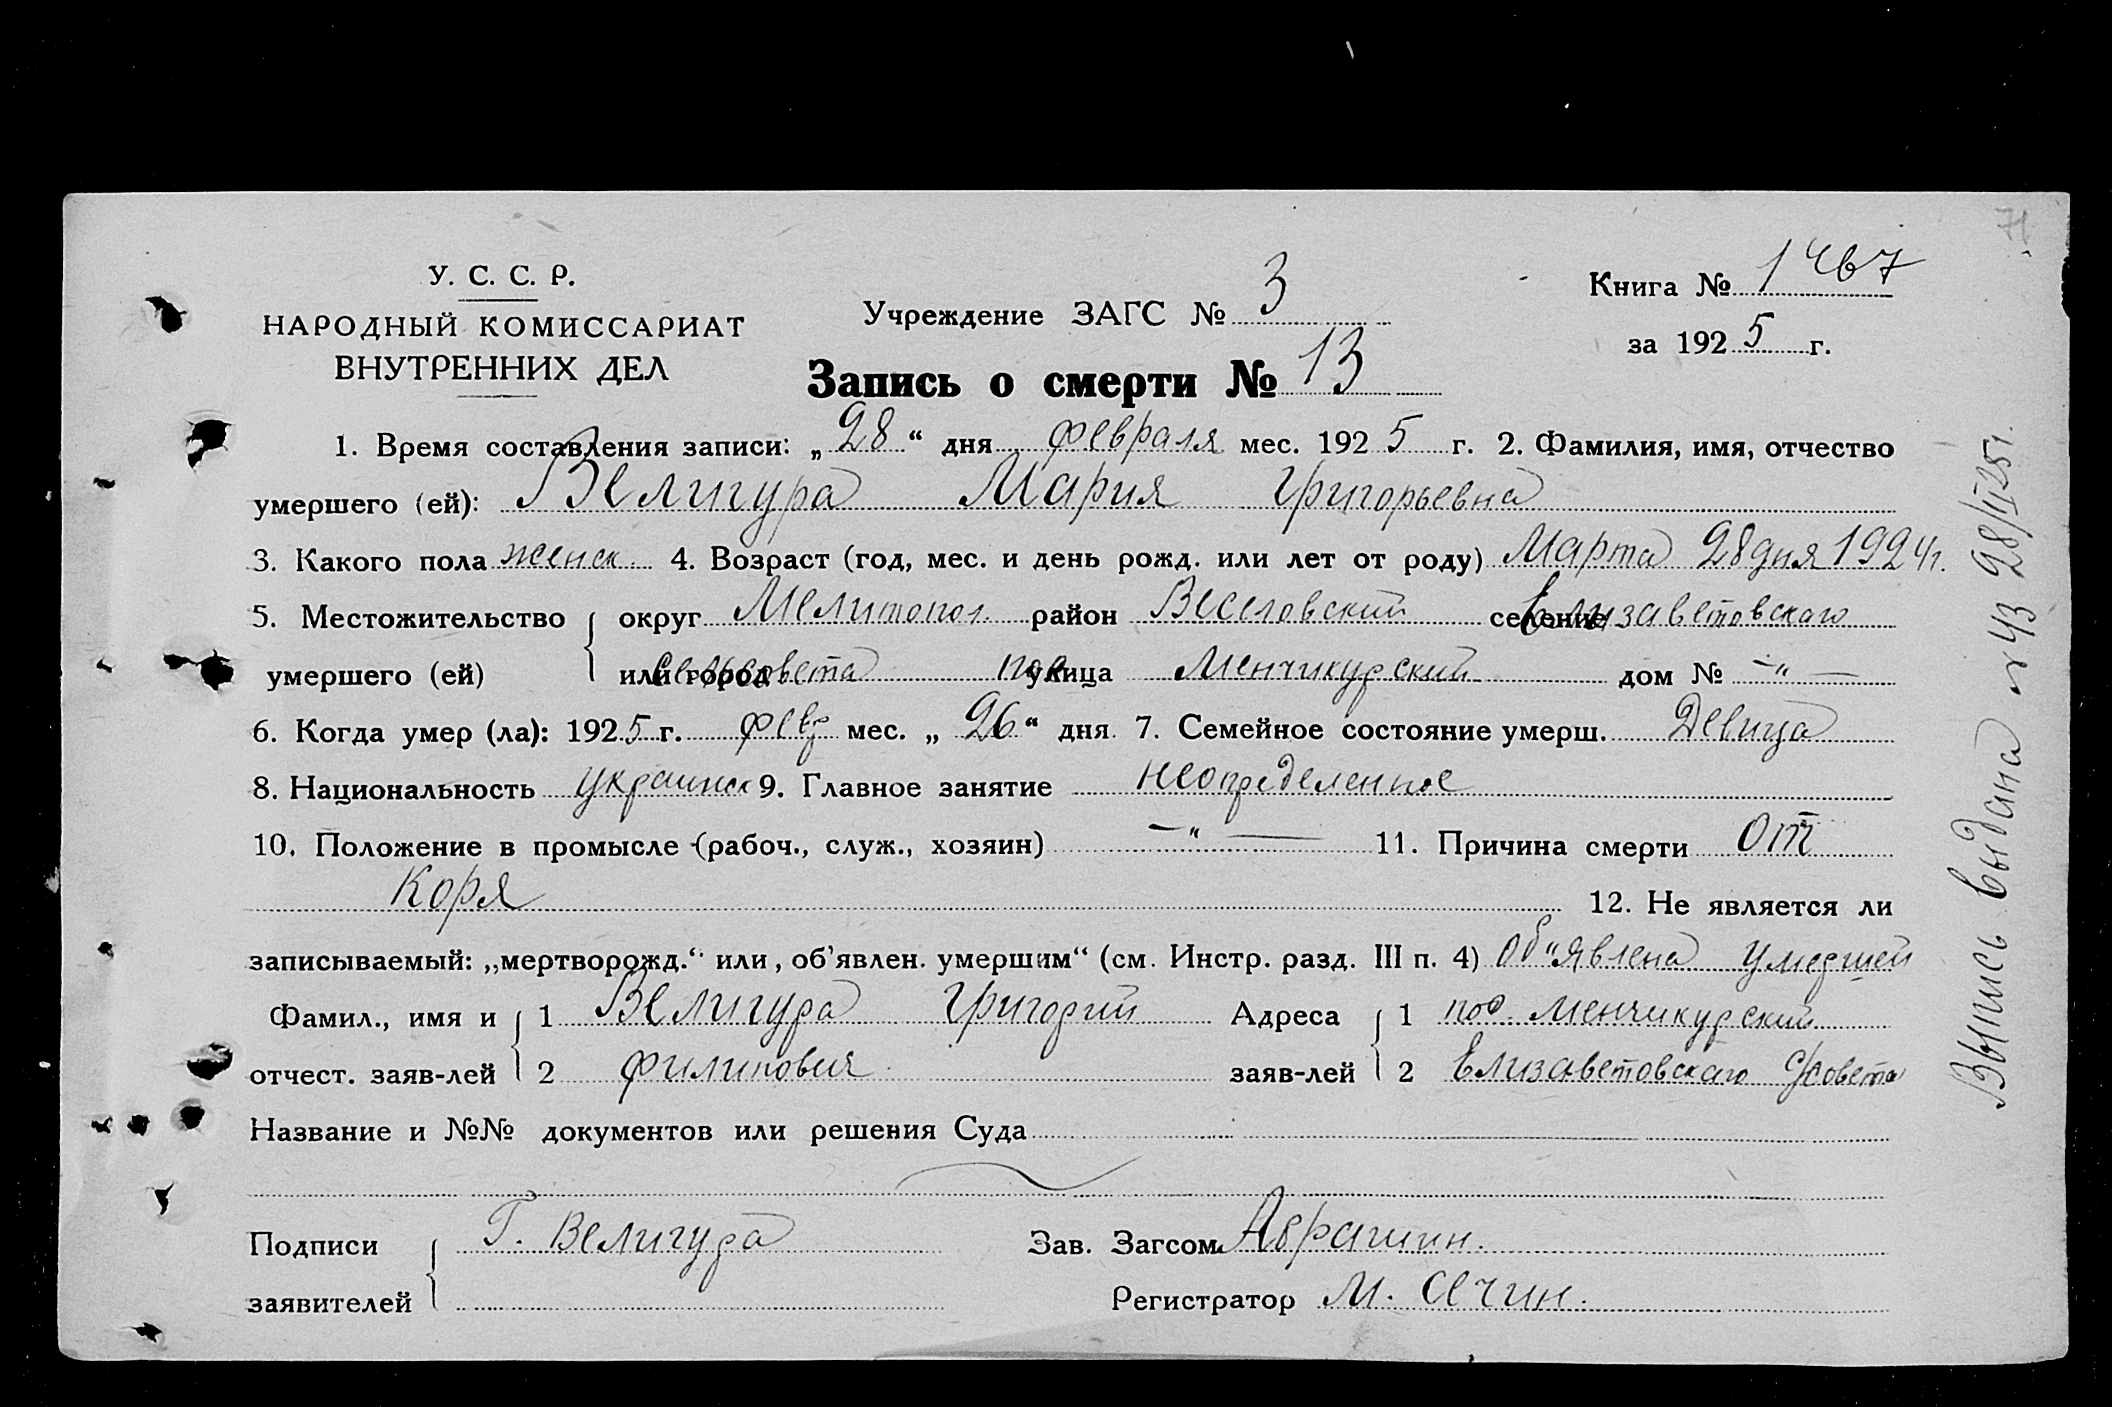 71
У. С. С. Р.
НАРОДНЫЙ КОМИССАРИАТ
ВНУТРЕННИХ ДЕЛ
Учреждение ЗАГС № 3
Книга № 1467
за 1925 г.
Запись о смерти № 13
1. Время составления записи: „28“ дня февраля мес. 1925 г. 2. Фамилия, имя, отчество
умершего (ей): Велигура Мария Григорьевна
3. Какого пола женск. 4. Возраст (год, мес. и день рожд. или лет от роду) Марта 28 дня 1924 г.
5. Местожительство округ Мелитопол. район Веселовский селение Елизаветовскаго
умершего (ей) или город сельсовета улица пос Менчикурский дом № —„—
6. Когда умер (ла): 1925 г. февр мес. „26“ дня. 7. Семейное состояние умерш. Девица
8. Национальность украинск 9. Главное занятие неопределенное
10. Положение в промысле (рабоч., служ., хозяин) —„— 11. Причина смерти от
Коря 12. Не является ли
записываемый: „мертворожд.“ или, об'явлен. умершим“ (см. Инстр. разд. III п. 4) Об"явлена умершей
Фамил., имя и 1 Велигура Григорий Адреса 1 пос. Менчикурский
отчест. заяв-лей 2 Филипович заяв-лей 2 Елизаветовскаго С/совета
Название и №№ документов или решения Суда
Подписи Г. Велигура Зав. Загсом Аврашин.
заявителей Регистратор М. Сечин.
Выпись выдана № 43 28/II 25 г.